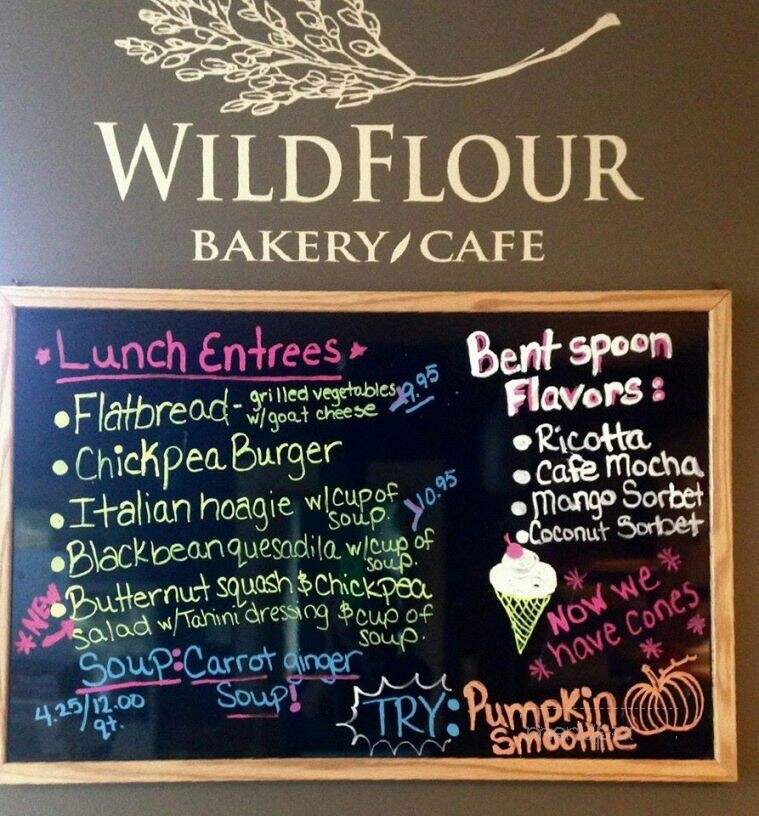 WILDFLOUR
BAKERY CAFE
Lunch Entrees
• Flatbread - grilled vegetables 9.95
w/goat cheese
• Chickpea Burger
• Italian hoagie w/cup of
soup. 10.95
• Blackbean quesadila w/cup of
soup.
*NEW • Butternut squash & Chickpea
salad w/Tahini dressing & cup of
soup.
Soup: Carrot ginger
Soup!
4.25/12.00
qt.
Bent spoon
Flavors:
• Ricotta
• Cafe Mocha
• Mango Sorbet
• Coconut Sorbet
* Now we *
* have cones *
TRY: Pumpkin
Smoothie